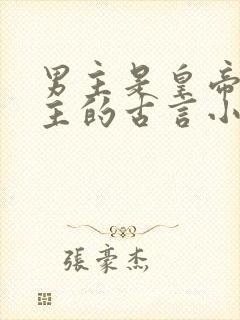 男主是皇帝
主的古言小
張豪杰